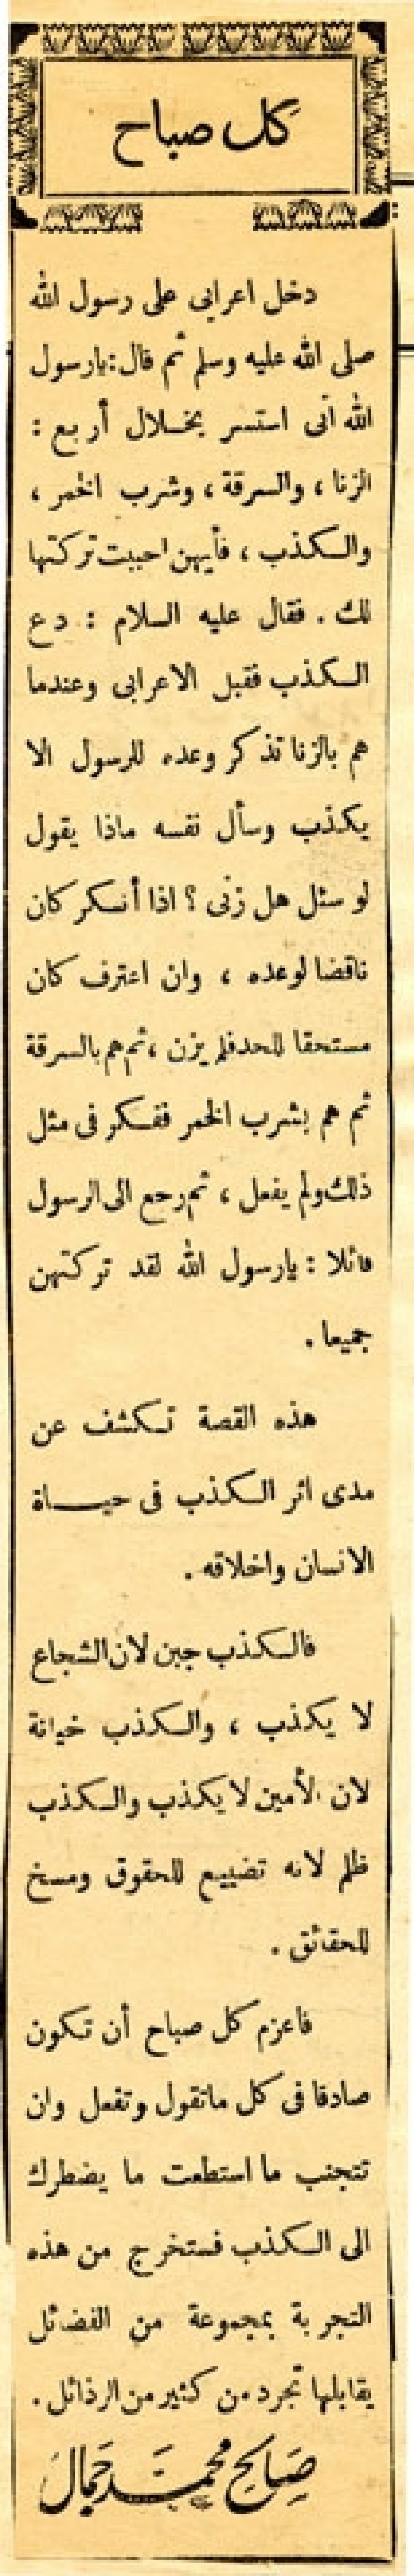 كل صباح
دخل اعرابى على رسول الله
صلى الله عليه وسلم ثم قال : يارسول
الله انى استسر بخلال أربع :
الزنا ، والسرقة ، وشرب الخمر ،
والكذب ، فأيهن احببت تركتها
لك . فقال عليه السلام : دع
الكذب فقبل الاعرابى وعندما
هم بالزنا تذكر وعده للرسول الا
يكذب وسأل نفسه ماذا يقول
لو سئل هل زنى ؟ اذا أنكر كان
ناقضا لوعده ، وان اعترف كان
مستحقا للحد فلم يزن ، ثم هم بالسرقة
ثم هم بشرب الخمر ففكر فى مثل
ذلك ولم يفعل ، ثم رجع الى الرسول
قائلا : يارسول الله لقد تركتهن
جميعا .
هذه القصة تكشف عن
مدى اثر الكذب فى حياة
الانسان واخلاقه .
فالكذب جبن لان الشجاع
لا يكذب ، والكذب خيانة
لان الأمين لا يكذب والكذب
ظلم لانه تضييع للحقوق ومسخ
للحقائق .
فاعزم كل صباح أن تكون
صادقا فى كل ماتقول وتفعل وان
تتجنب ما استطعت ما يضطرك
الى الكذب فستخرج من هذه
التجربة بمجموعة من الفضائل
يقابلها تجرد من كثير من الرذائل .
صالح محمد جمال